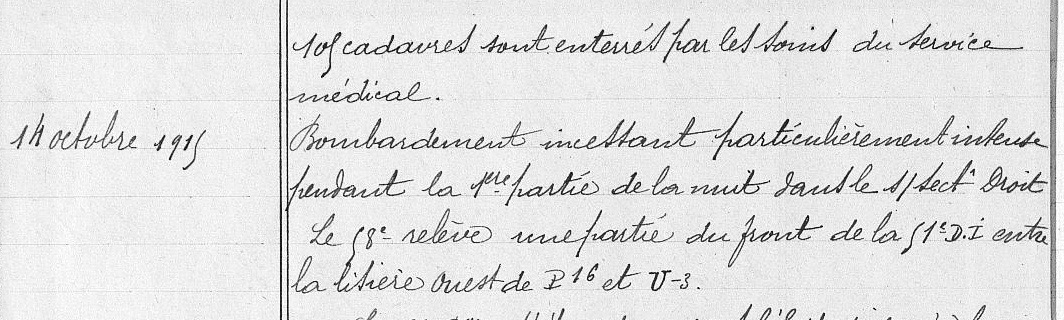 105 cadavres sont enterrés par les soins du service
médical.
14 octobre 1915
Bombardement incessant particulièrement intense
pendant la 1ère partie de la nuit dans le s/secṭʳ Droit
Le 58e relève une partie du front de la 51e D.I entre
la lisière Ouest de P16 et U-3.